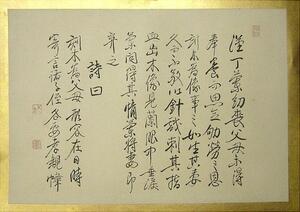 漢丁蘭幼喪父母未得
奉養而思念劬勞之恩
刻木為像事之如生其妻
久而不敬以針戲刺其指
血出木像見蘭眼中垂淚
蘭問得其情蘭將妻即
棄之
詩曰
刻木為父母形容在日時
寄言諸子侄各要孝親幃